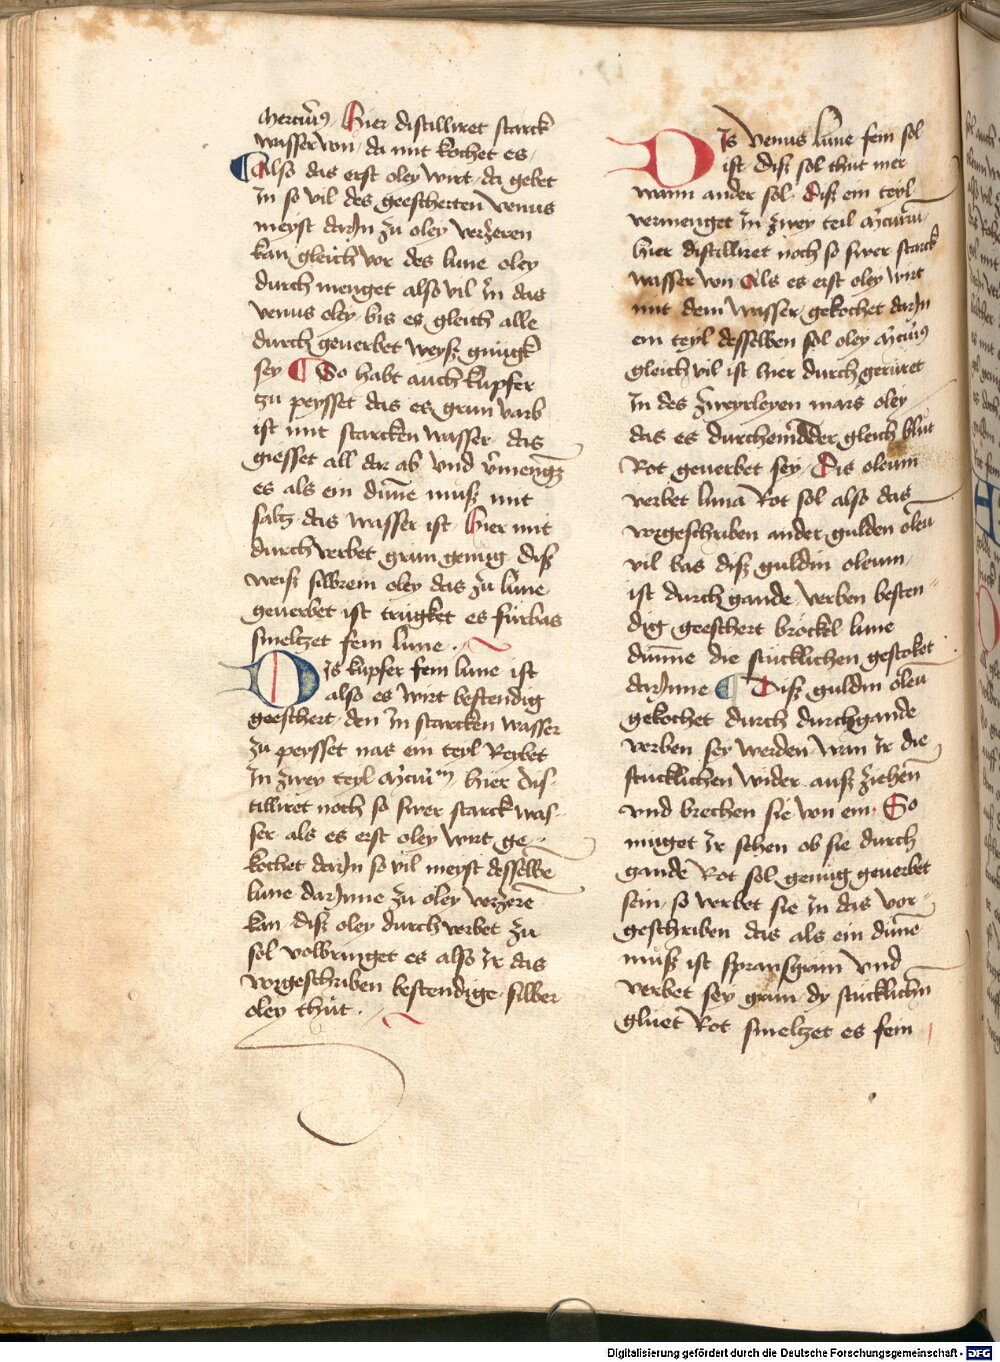 mercurius. hier distilliret starck
wasser von. da mit kochet es.
Also das erst oley wirt. da gebet
In so vil des geescherten venus
meyst darJn zu oley verzeren
kan gleich vor des lune oley
durch menget also vil in das
venus oley. bis es gleich alle
durch geuerbet weysz gnügk
sey So habt auch kupfer
zu peysset das es grun varb
ist mit starcken wasser. das
giesset all dar ab vnd v̄mengt
es als ein dun̄e müsz mit
saltz. das wasser ist. hier mit
durch verbet grün genüg disz
weisz silbrein oley das zu lune
geuerbet ist trugket es fürbas
smeltzet fein lune.
DIs kupfer fein lune ist
also es wirt bestendig
geeschert. den in starcken wasser
zu peysset nas ein teyl Reybet
In zwey teyl hier dis-
tilliret noch so swer starck was-
ser. als es erst oley wirt ge-
kochet darJn so vil meyst desselbē
lune darJnne zu oley verzerē
kan disz oley durch verbet zu
sol volbringet es also Jr das
vorgeschriben bestendige silber
oley thüt.
DIs venus lune fein sol
ist. disz sol thüt mer
wann ander sol. Disz ein teyl
vermenget in zwey teil
hier distilliret noch so swer starck
wasser von Als es erst oley wirt
mit dem wasser. gekochet darJn
ein teyl desselben sol oley
gleich vil ist hier durch gerüret
In des zweyerleyen mars oley
das es durcheinander gleich blüt
Rot geuerbet sey. Dis oleum
verbet luna Rot sol also das
vorgeschriben ander gulden oleū
vil bas disz guldin oleum.
ist durch gande verben besten-
dig geeschert bröckl lune
dun̄e die stücklichen gestoket
darJnne Disz guldin oleū
gekochet durch durchgande
verben sey werden wan Jr die
stücklichen wider ausz ziehen
vnd brechen sie von ein. So
müget Jr sehen ob sie durch
gande Rot sol genüg geuerbet
sein. so verbet sie Jn das vor-
geschriben das als ein dun̄e
müsz ist spansgrün vnd
verbet sey grün. dy stücklichn̄
gluet Rot smeltzet es fein
Digitalisierung gefördert durch die Deutsche Forschungsgemeinschaft - DFG